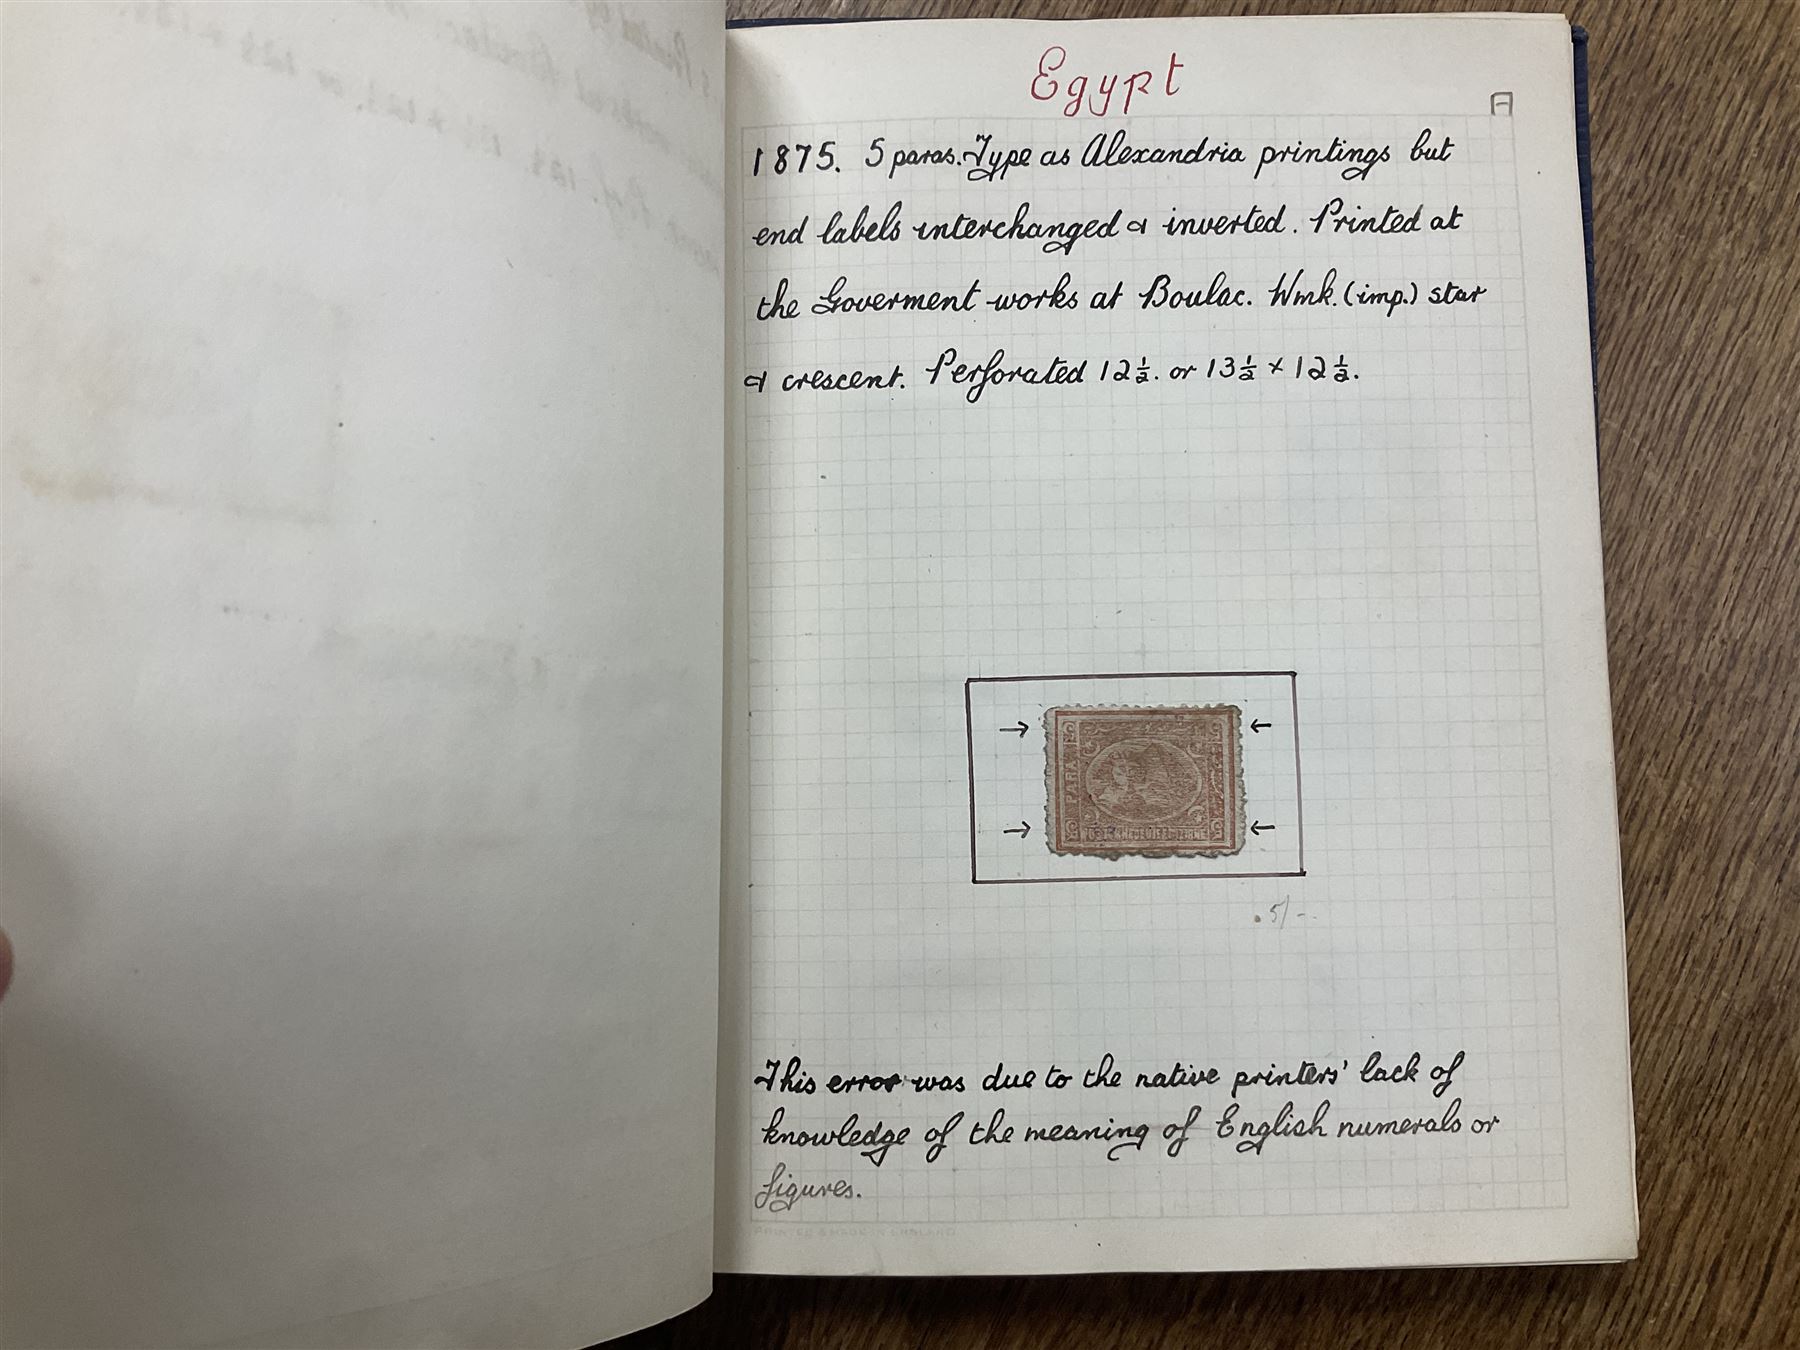 Egypt
1875. 5 paras. Type as Alexandria printings but
end labels interchanged & inverted. Printed at
the Goverment works at Boulac. Wmk. (imp.) star
& crescent. Perforated 12½. or 13½ x 12½.
PARA
5/-
This error was due to the native printers' lack of
knowledge of the meaning of English numerals or
figures.
PRINTED & MADE IN ENGLAND